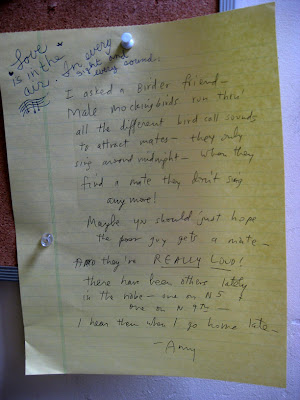 Love
is in the
air. In every
sight and
every sound.
I asked a Birder friend—
Male mockingbirds run thru'
all the different bird call sounds
to attract mates— they only
sing around midnight— when they
find a mate they don't sing
any more!
Maybe you should just hope
the poor guy gets a mate—
AND they're REALLY LOUD!
there have been others lately
in the nabe— one on N 5 +
one on N 9th—
I hear them when I go home late—
—Amy